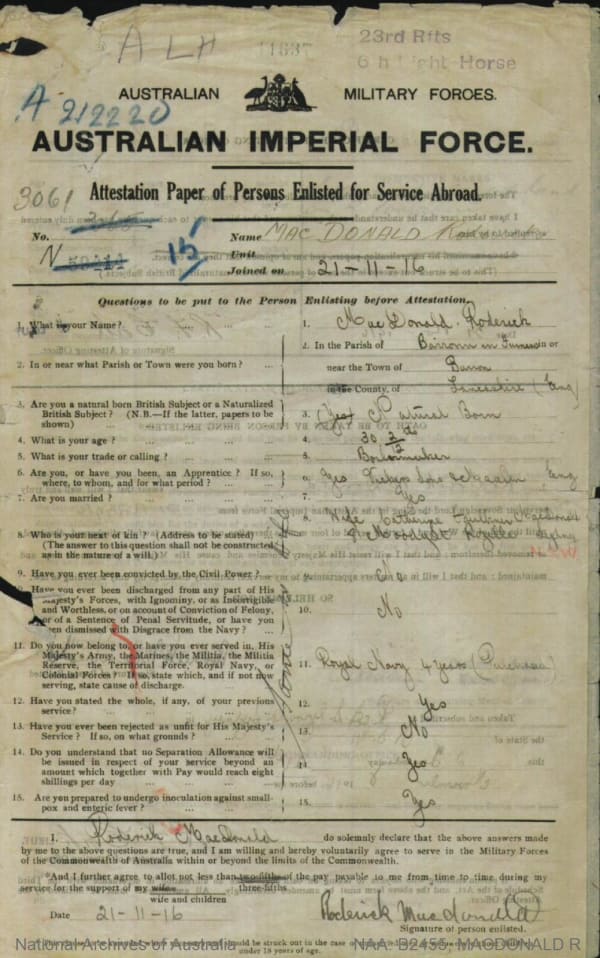 A L H
11637
23rd Rfts
6th Light Horse
A 212220
AUSTRALIAN MILITARY FORCES.
AUSTRALIAN IMPERIAL FORCE.
3061
Attestation Paper of Persons Enlisted for Service Abroad.
No.
N
15
Name MAC DONALD Roderick
Unit
Joined on 21-11-16
Questions to be put to the Person Enlisting before Attestation.
1. What is your Name? ... 1. MacDonald. Roderick
2. In or near what Parish or Town were you born? ... 2. In the Parish of Barrow in Furness in or
near the Town of Barrow
in the County of Lancashire (Eng)
3. Are you a natural born British Subject or a Naturalized
British Subject? (N.B.—If the latter, papers to be
shown) ... 3. (Yes) Natural Born
4. What is your age? ... 4. 30 3/12
5. What is your trade or calling? ... 5. Boilermaker
6. Are you, or have you been, an Apprentice? If so,
where, to whom, and for what period? ... 6. Yes Vickers Eng
7. Are you married? ... 7. Yes
8. Who is your next of kin? (Address to be stated)
(The answer to this question shall not be constructed
as in the nature of a will.) 8. Wife Catherine MacDonald
9 Moodie St Rozelle Sydney
NSW
9. Have you ever been convicted by the Civil Power? ... 9. No
Have you ever been discharged from any part of His
Majesty's Forces, with Ignominy, or as Incorrigible
and Worthless, or on account of Conviction of Felony,
or of a Sentence of Penal Servitude, or have you
been dismissed with Disgrace from the Navy? ... 10. No
11. Do you now belong to, or have you ever served in, His
Majesty's Army, the Marines, the Militia, the Militia
Reserve, the Territorial Force, Royal Navy, or
Colonial Forces? If so, state which, and if not now
serving, state cause of discharge. 11. Royal Navy 4 years (Purchase)
12. Have you stated the whole, if any, of your previous
service? ... 12. Yes
13. Have you ever been rejected as unfit for His Majesty's
Service? If so, on what grounds? ... 13. No
14. Do you understand that no Separation Allowance will
be issued in respect of your service beyond an
amount which together with Pay would reach eight
shillings per day ... 14. Yes
15. Are you prepared to undergo inoculation against small-
pox and enteric fever? ... 15. Yes
I, Roderick MacDonald do solemnly declare that the above answers made
by me to the above questions are true, and I am willing and hereby voluntarily agree to serve in the Military Forces
of the Commonwealth of Australia within or beyond the limits of the Commonwealth.
*And I further agree to allot not less than two-fifths of the pay payable to me from time to time during my
three-fifths
service for the support of my wife
wife and children
Date 21-11-16
Roderick Macdonald
Signature of person enlisted.
should be struck out in the case of
under 18 years of age.
National Archives of Australia
NAA: B2455, MACDONALD R